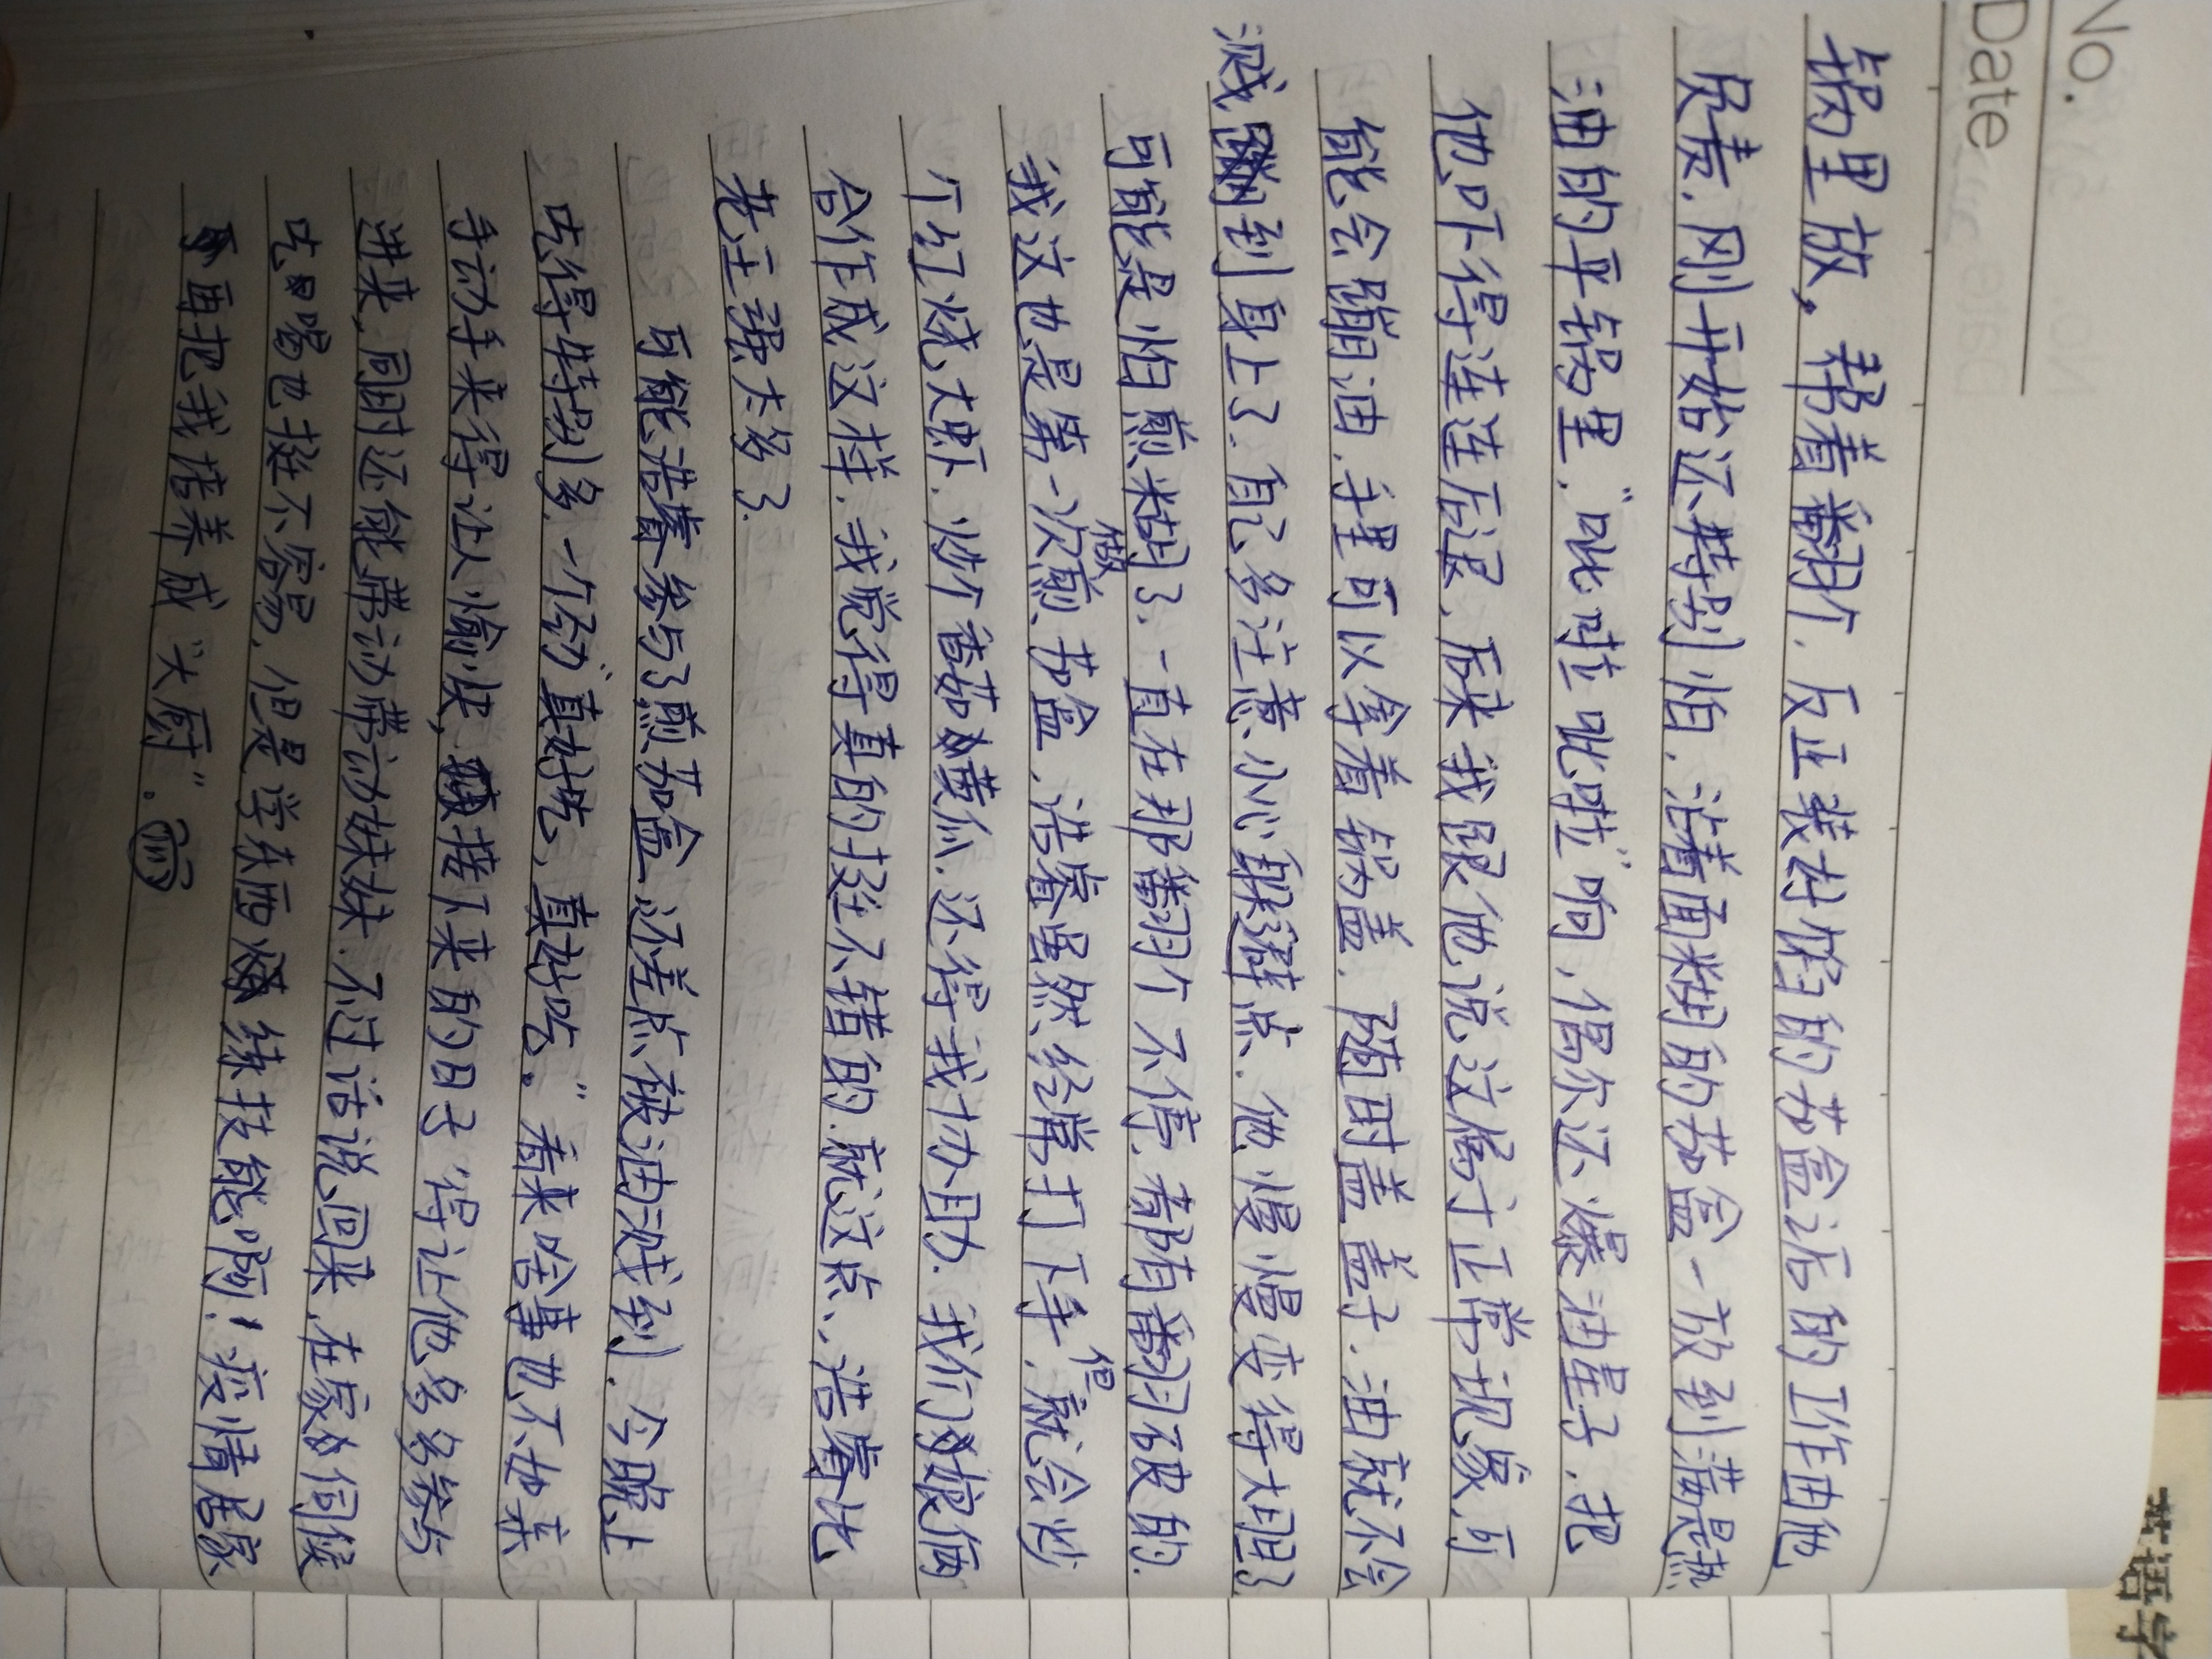 No.
Date
锅里放，帮着翻个，反正装好馅的茄盒后的工作由他
负责，刚开始还特别怕，沾着面糊的茄盒一放到满是热
油的平锅里，“呲啦呲啦”响，偶尔还爆油星子，把
他吓得连连后退，后来我跟他说这属于正常现象，可
能会蹦油，手里可以拿着锅盖，随时盖盖子，油就不会
溅到身上了，自己多注意小心躲避点，他慢慢变得大胆了，
可能是怕煎糊了，一直在那翻个不停，都有翻破皮的，
我这也是第一次煎做茄盒，浩睿虽然经常打下手，但就会炒
个红烧大虾，炒个香菇黄瓜，还得我协助，我们娘俩
合作成这样，我觉得真的挺不错的，就这点，浩睿比
老庄强太多了
可能浩睿参与了煎茄盒，还差点被油溅到，今晚上
吃得特别多，一个劲“真好吃，真好吃。”看来啥事也不如亲
手动手来得让人愉快，接下来的日子得让他多多参与
进来，同时还能带动带动妹妹，不过话说回来，在家伺候
吃喝也挺不容易，但是学东西练技能啊！疫情居家
再把我培养成“大厨”。
英语学